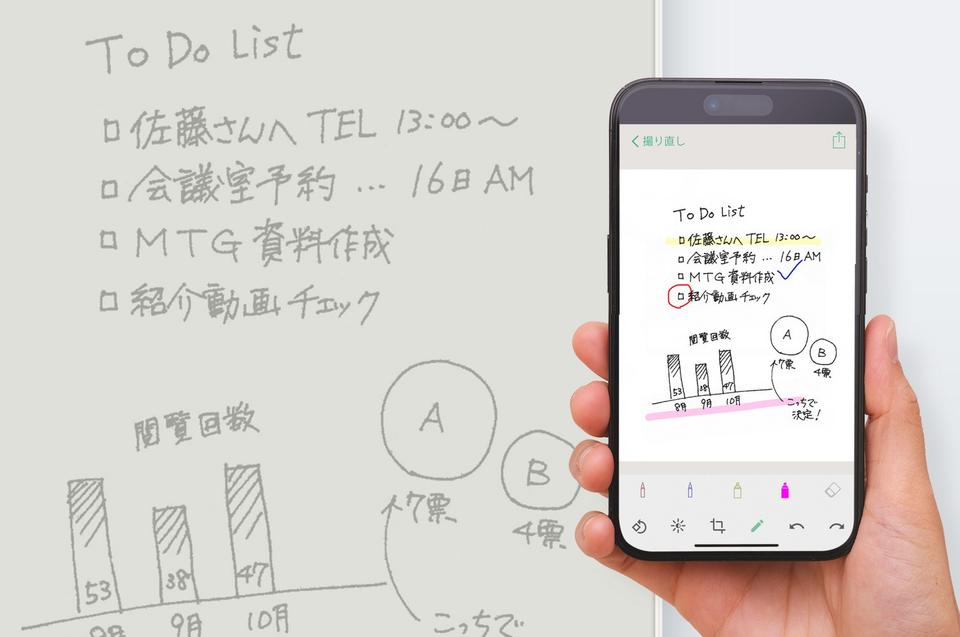 To Do List
□ 佐藤さんへ TEL 13:00〜
□ 会議室予約 … 16日 AM
□ MTG 資料作成
□ 紹介動画チェック
閲覧回数
A
B
7票
4票
53
38
47
8月
9月
10月
こっちで
撮り直し
To Do List
□ 佐藤さんへ TEL 13:00〜
□ 会議室予約 … 16日 AM
□ MTG 資料作成
□ 紹介動画チェック
閲覧回数
A
B
7票
4票
53
38
47
8月
9月
10月
こっちで
決定!